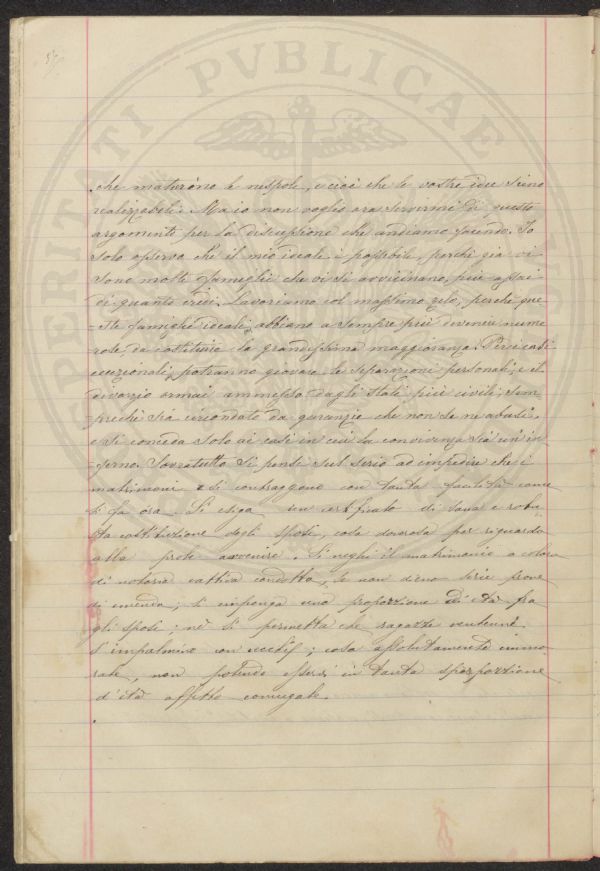 PROSPERITATI PVBLICAE
che maturino le nespole, e cioè che le vostre idee sieno
realizzabili. Ma io non voglio ora servirmi di questo
argomento per la discussione che andiamo facendo. Io
solo osservo che il mio ideale è possibile, perchè già vi
sono molte famiglie che vi si avvicinano, più assai
di quanto credi. Lavoriamo col massimo zelo, perchè que-
-ste famiglie ideali abbiano a sempre più divenir nume-
rose, da costituire la grandissima maggioranza. Pei casi
eccezionali, potranno giovare le separazioni personali, e il
divorzio ormai ammesso dagli Stati più civili, sem-
prechè sia circondato da garanzie che non se ne abusi,
e si conceda solo ai casi in cui la convivenza sia un in-
-ferno. Sovratutto si pensi sul serio ad impedire che i
matrimoni si contraggano con tanta facilità come
si fa ora. Si esiga un certificato di sana e robu-
sta costituzione degli sposi, cosa doverosa per riguardo
alla prole avvenire. Si neghi il matrimonio a coloro
di notoria cattiva condotta, se non dieno serie prove
di emenda; s'imponga una proporzione di età fra
gli sposi; nè si permetta che ragazze ventenni
s'impalmino con vecchi; cosa assolutamente immo-
rale, non potendo esservi in tanta sproporzione
d'età affetto coniugale.